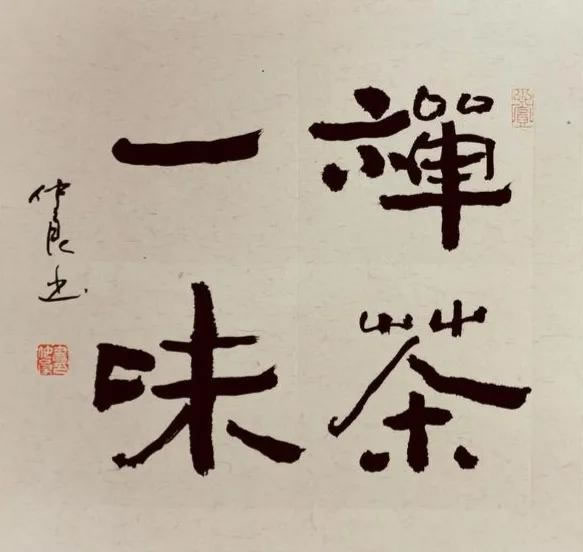 禪茶
一味
仲良书